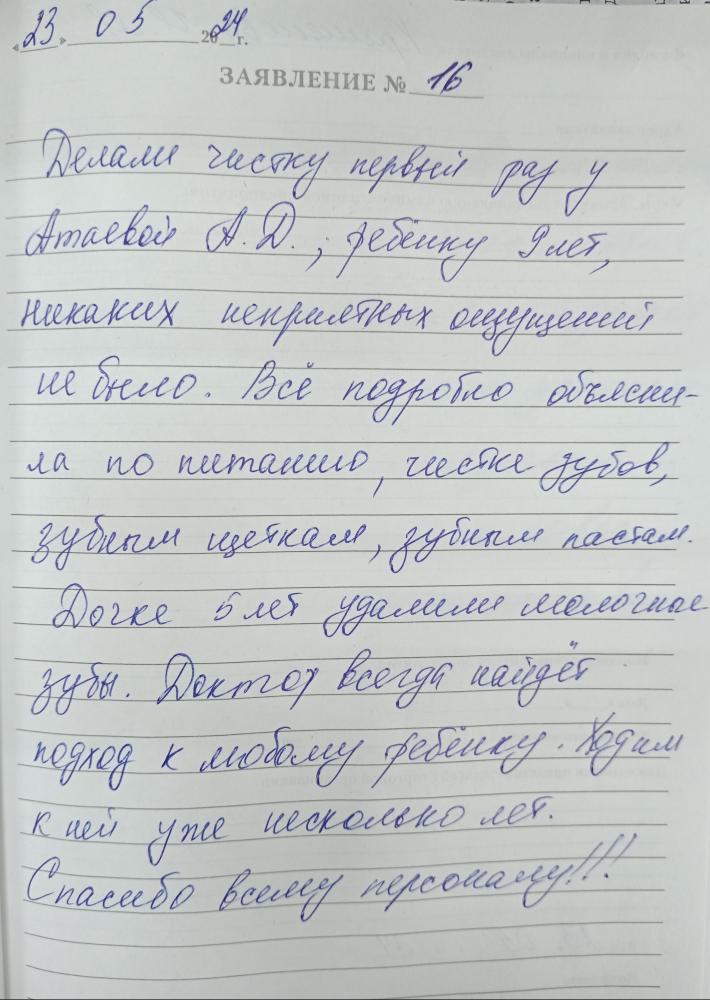 «23» 05 2024 г.
ЗАЯВЛЕНИЕ № 16
Делали чистку первый раз у
Атаевой А.Д., ребёнку 9 лет,
никаких неприятных ощущений
не было. Всё подробно объясни-
ла по питанию, чистке зубов,
зубным щеткам, зубным пастам.
Дочке 5 лет удалили молочные
зубы. Доктор всегда найдёт
подход к любому ребёнку. Ходим
к ней уже несколько лет.
Спасибо всему персоналу!!!